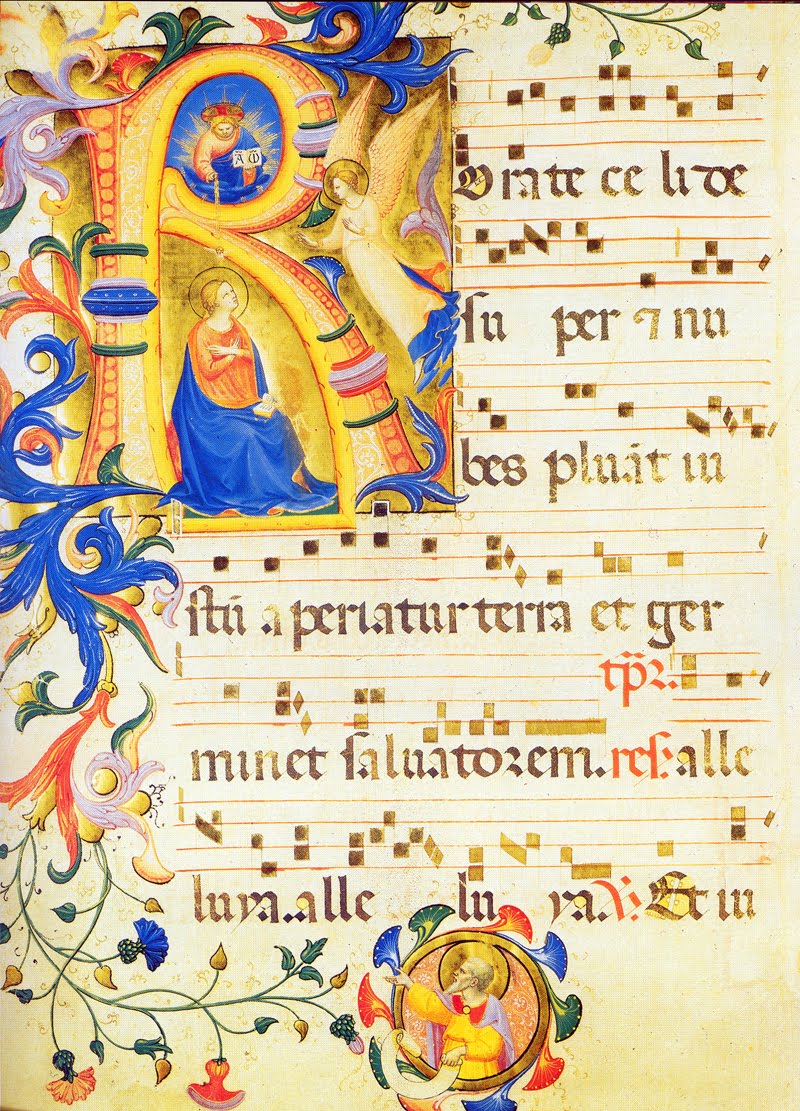 A ω
R Orate ce li de
su per ⁊ nu
bes pluāt iu
stū a periatur terra et ger
tp̄ꝛ.
minet saluatoꝛem. res. alle
luya. alle lu ya. ℣. Et in